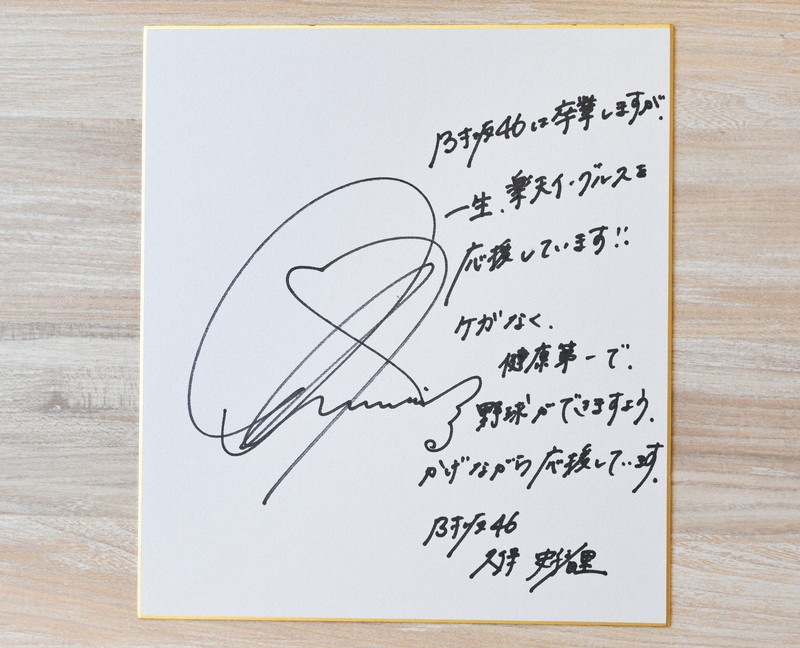 乃木坂46は卒業しますが、
一生、楽天イーグルスを
応援しています!!
ケガなく、
健康第一で、
野球ができますよう、
かげながら応援しています。
乃木坂46
久保 史緒里